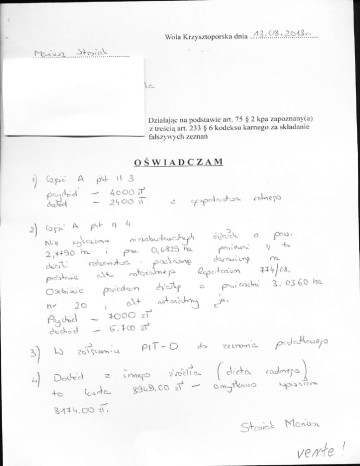 Wola Krzysztoporska dnia 13.08.2018r.
Mariusz Stasiak
Działając na podstawie art. 75 § 2 kpa zapoznany(a)
z treścią art. 233 § 6 kodeksu karnego za składanie
fałszywych zeznań
OŚWIADCZAM
1) Część A pkt II 3
przychód – 4000 zł
dochód – 2400 zł z gospodarstwa rolnego
2) Część A pkt II 4
Nie wykazałem niezabudowanych działek o pow.
2,1790 ha i pow. 0,6829 ha ponieważ są to
działki
podstawie aktu notarialnego Repertorium 774/08.
Osobiście posiadam działkę o powierzchni 3.0360 ha
nr 20, akt notarialny j.w.
Przychód – 7000 zł
dochód – 5.700 zł
3) W załączeniu PIT-O do zeznania podatkowego
4) Dochód z innego źródła (dieta radnego)
to kwota 8949.00 zł – omyłkowo wpisałem
8174.00 zł.
Stasiak Mariusz
verte!